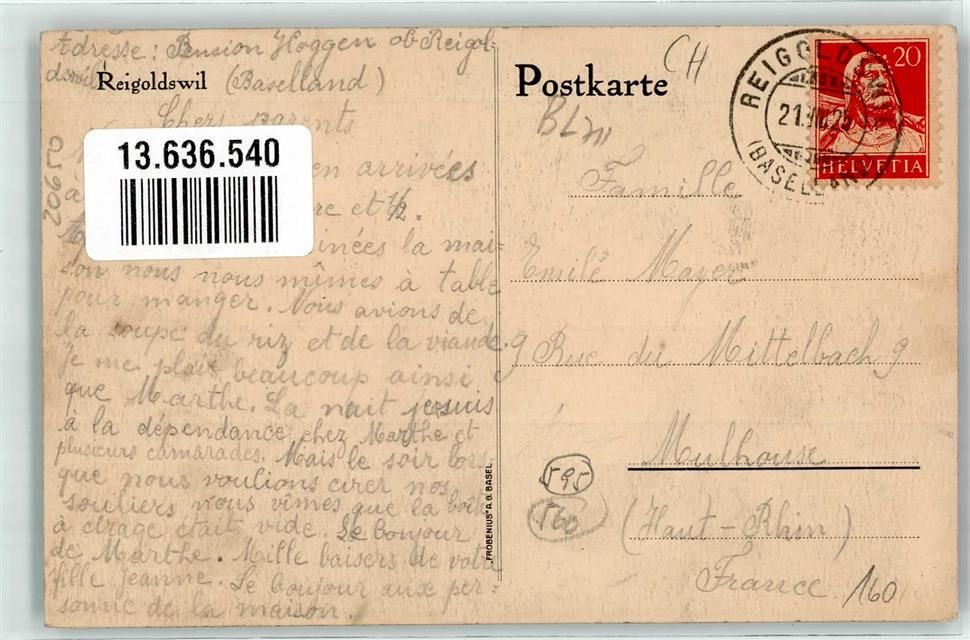 Adresse: Pension Hoggen ob Reigol-
dswil
Reigoldswil (Baselland)
Chers parents
13.636.540
en arrivées
à re et ½.
inées la mai-
son nous nous mîmes à table
pour manger. Nous avions de
la soupe du riz et de la viande.
Je me plais beaucoup ainsi
que Marthe. La nuit je suis
à la dépendance chez Marthe et
plusieurs camarades. Mais le soir lors-
que nous voulions cirer nos
souliers nous vîmes que la boîte
à cirage était vide. Le bonjour
de Marthe. Mille baisers de votre
fille Jeanne. Le bonjour aux per-
sonne de la maison.
20650
FROBENIUS A.G. BASEL
Postkarte
CH
BL
REIGOLDSWIL
(BASELLAND)
20
HELVETIA
Famille
Emile Mayer
9 Rue du Mittelbach 9
Mulhouse
595
560
(Haut-Rhin)
France
160